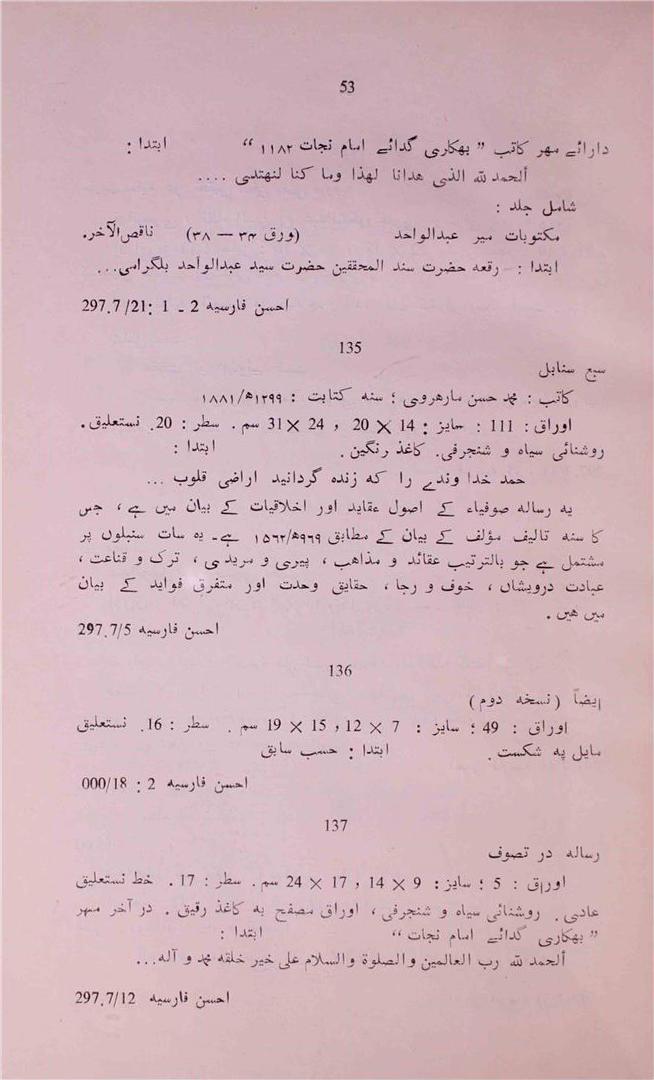 53
دارائے مہر کاتب ” بھکاری گدائے امام نجات ۱۱۸۲ “ ابتدا :
ألحمد للہ الذی ھدانا لھذا وما کنا لنھتدی ....
شامل جلد :
مکتوبات میر عبدالواحد (ورق ۳۴ — ۳۸) ناقص‌الآخر.
ابتدا : رقعہ حضرت سند المحققین حضرت سید عبدالواحد بلگرامی...
احسن فارسیہ 2 ـ 1 :297.7/21
135
سبع سنابل
کاتب : محمد حسن مارھروی ؛ سنہ کتابت : ۱۲۹۹ھ/۱۸۸۱
اوراق : 111 : سایز : 14 × 20 و 24 × 31 سم . سطر : 20. نستعلیق.
روشنائی سیاہ و شنجرفی. کاغذ رنگین . ابتدا :
حمد خدا وندے را کہ زندہ گردانید اراضی قلوب ...
یہ رسالہ صوفیاء کے اصول عقاید اور اخلاقیات کے بیان میں ہے ، جس
کا سنہ تالیف مؤلف کے بیان کے مطابق ۹۶۹ھ/۱۵۶۲ ہے۔ یہ سات سنبلوں پر
مشتمل ہے جو بالترتیب عقائد و مذاھب ، پیری و مریدی ، ترک و قناعت ،
عبادت درویشاں ، خوف و رجا ، حقایق وحدت اور متفرق فواید کے بیان
میں ھیں .
احسن فارسیہ 297.7/5
136
ایضاً (نسخہ دوم)
اوراق : 49 ؛ سایز : 7 × 12 و 15 × 19 سم . سطر : 16. نستعلیق
مایل بہ شکست . ابتدا : حسب سابق
احسن فارسیہ 2 : 000/18
137
رسالہ در تصوف
اوراق : 5 ؛ سایز : 9 × 14 و 17 × 24 سم . سطر : 17 . خط نستعلیق
عادی . روشنائی سیاہ و شنجرفی ، اوراق مصفح بہ کاغذ رقیق . در آخر مہر
” بھکاری گدائے امام نجات “ ابتدا :
ألحمد للہ رب العالمین والصلوۃ والسلام علی خیر خلقہ محمد و آلہ...
احسن فارسیہ 297.7/12